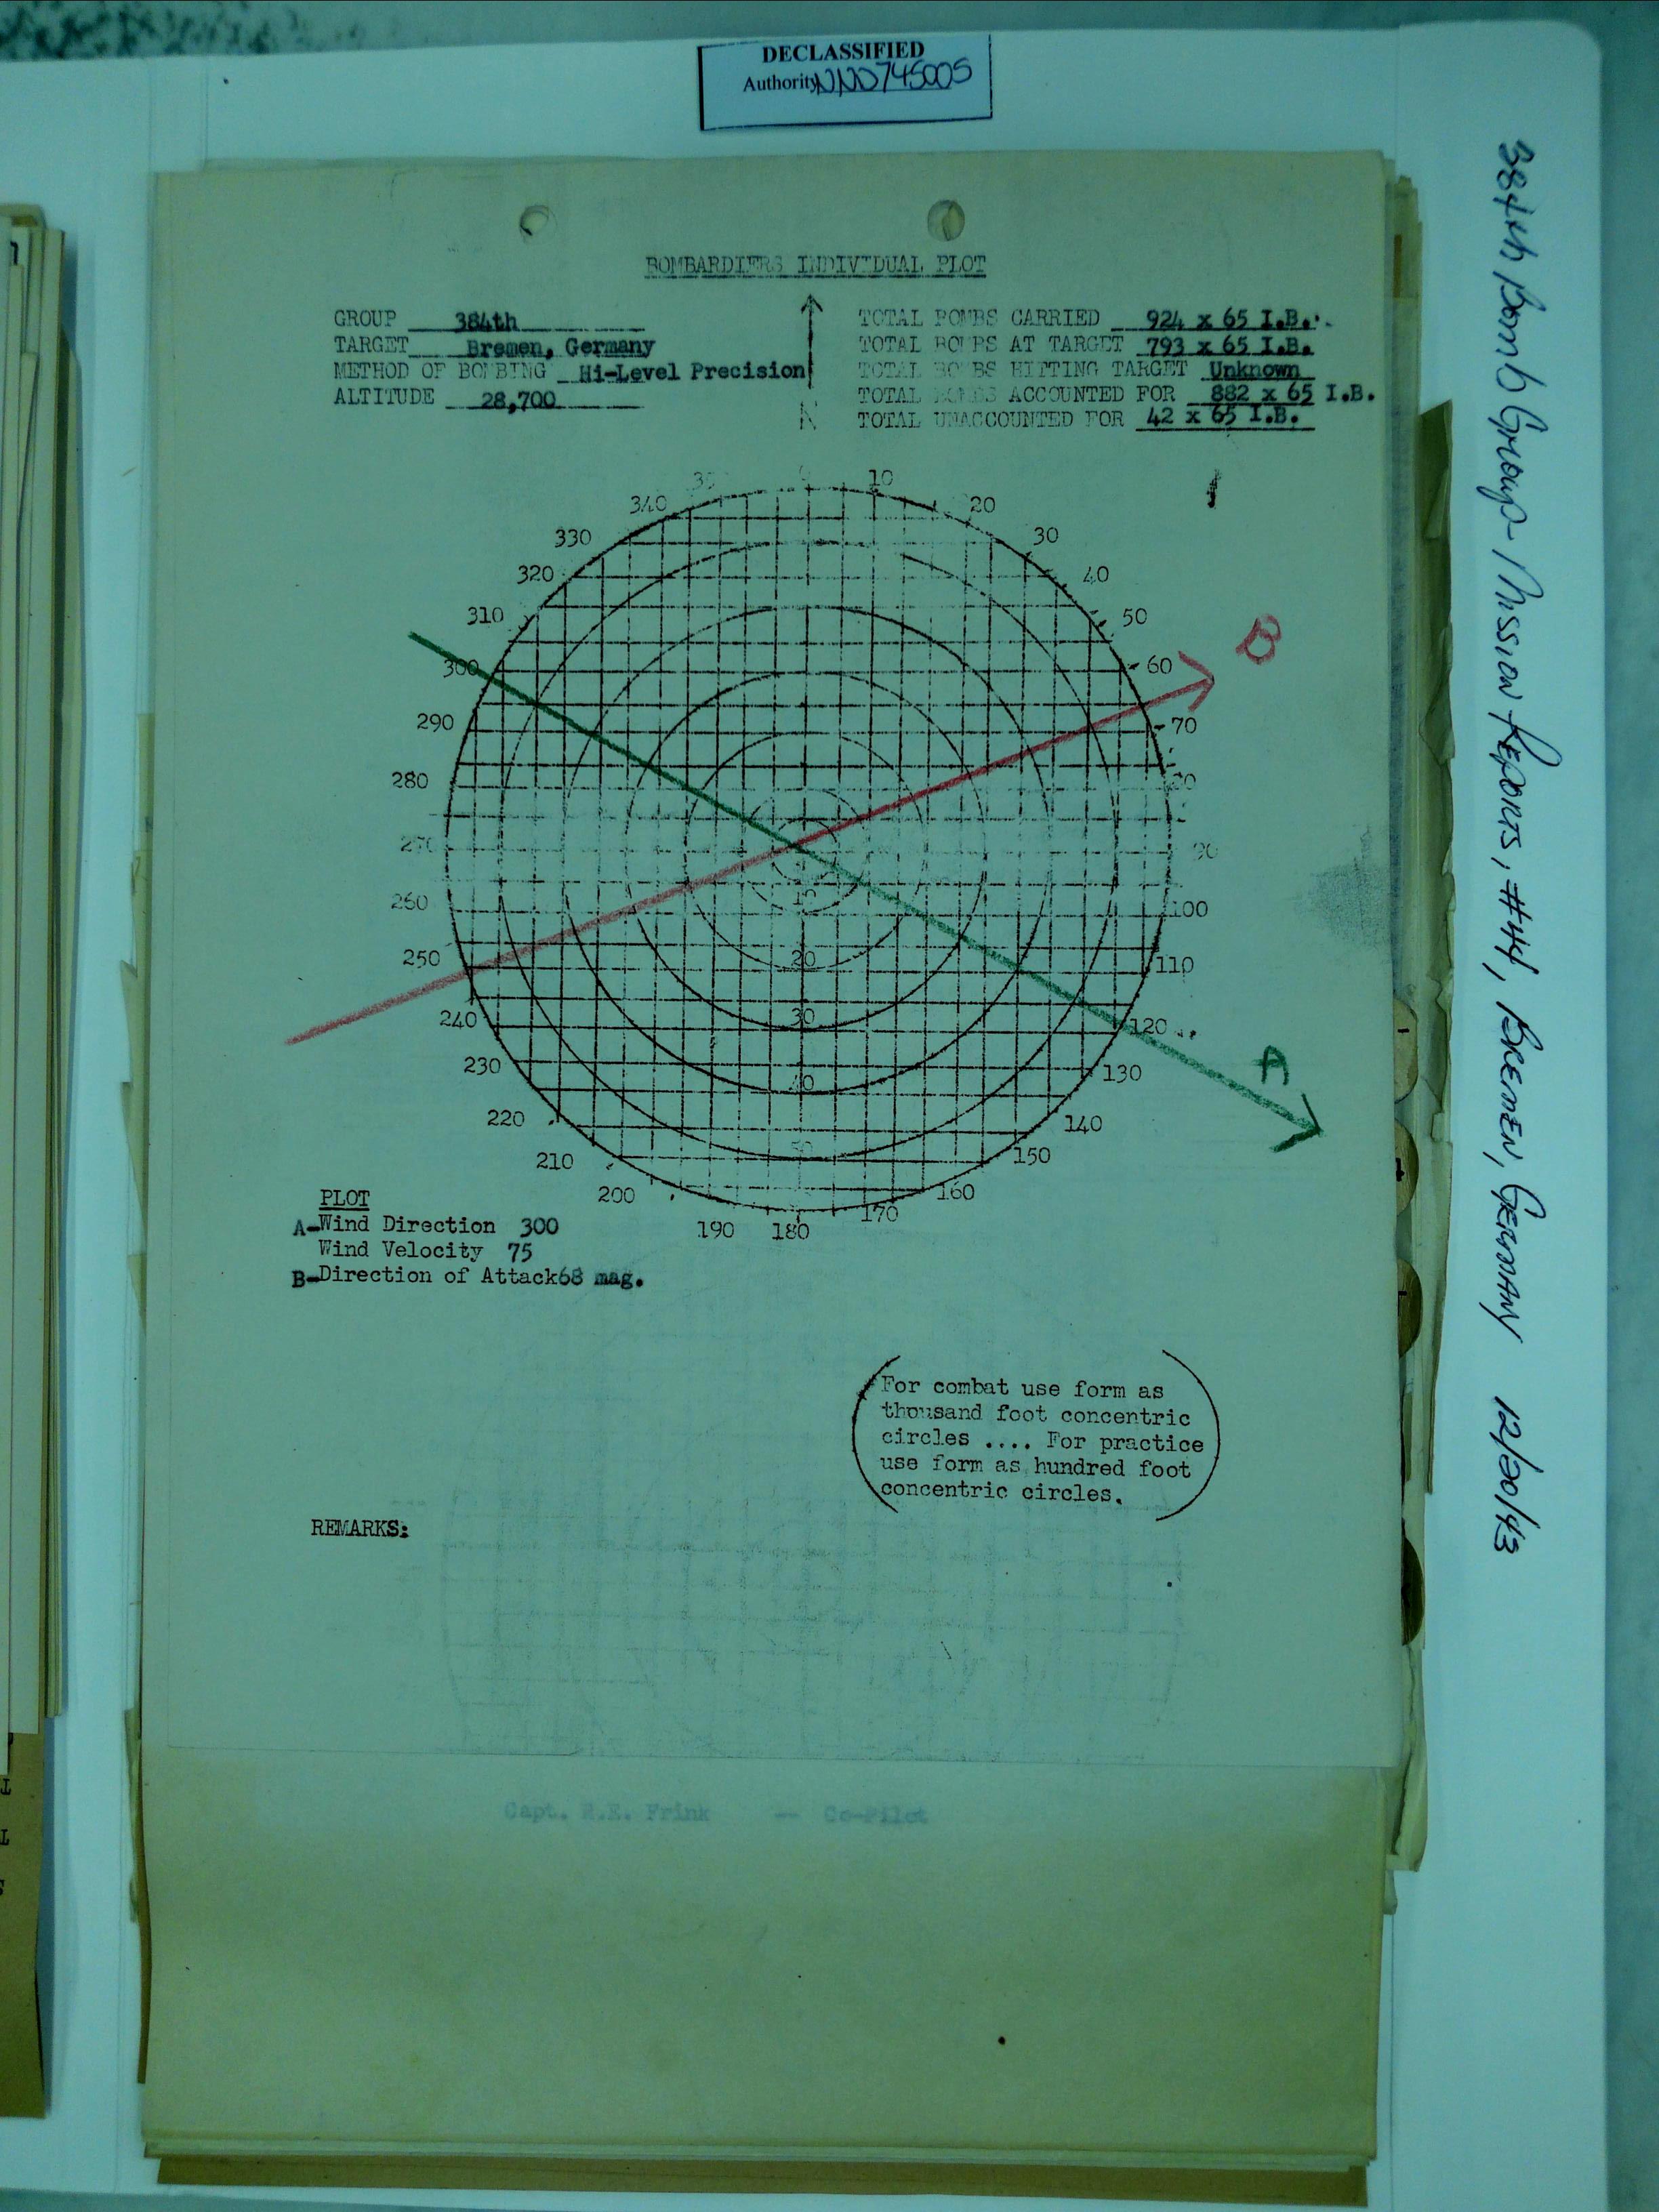 DECLASSIFIED
Authority NND745005
384th Bomb Group - Mission Reports, #44, Bremen, Germany 12/20/43
BOMBARDIERS INDIVIDUAL PLOT
GROUP 384th
TARGET Bremen, Germany
METHOD OF BOMBING Hi-Level Precision
ALTITUDE 28,700
N
TOTAL BOMBS CARRIED 924 x 65 I.B.
TOTAL BOMBS AT TARGET 793 x 65 I.B.
TOTAL BOMBS HITTING TARGET Unknown
TOTAL BOMBS ACCOUNTED FOR 882 x 65 I.B.
TOTAL UNACCOUNTED FOR 42 x 65 I.B.
10
340 20
330 30
320 40
310 50
B
300 60
290 70
280
270 90
260 100
10
250 110
20
240 120
30
230 130
A
40
220 140
50
210 150
200 160
190 180 170
PLOT
A-Wind Direction 300
Wind Velocity 75
B-Direction of Attack 68 mag.
For combat use form as
thousand foot concentric
circles .... For practice
use form as hundred foot
concentric circles.
REMARKS:
Capt. R.E. Frink -- Co-Pilot